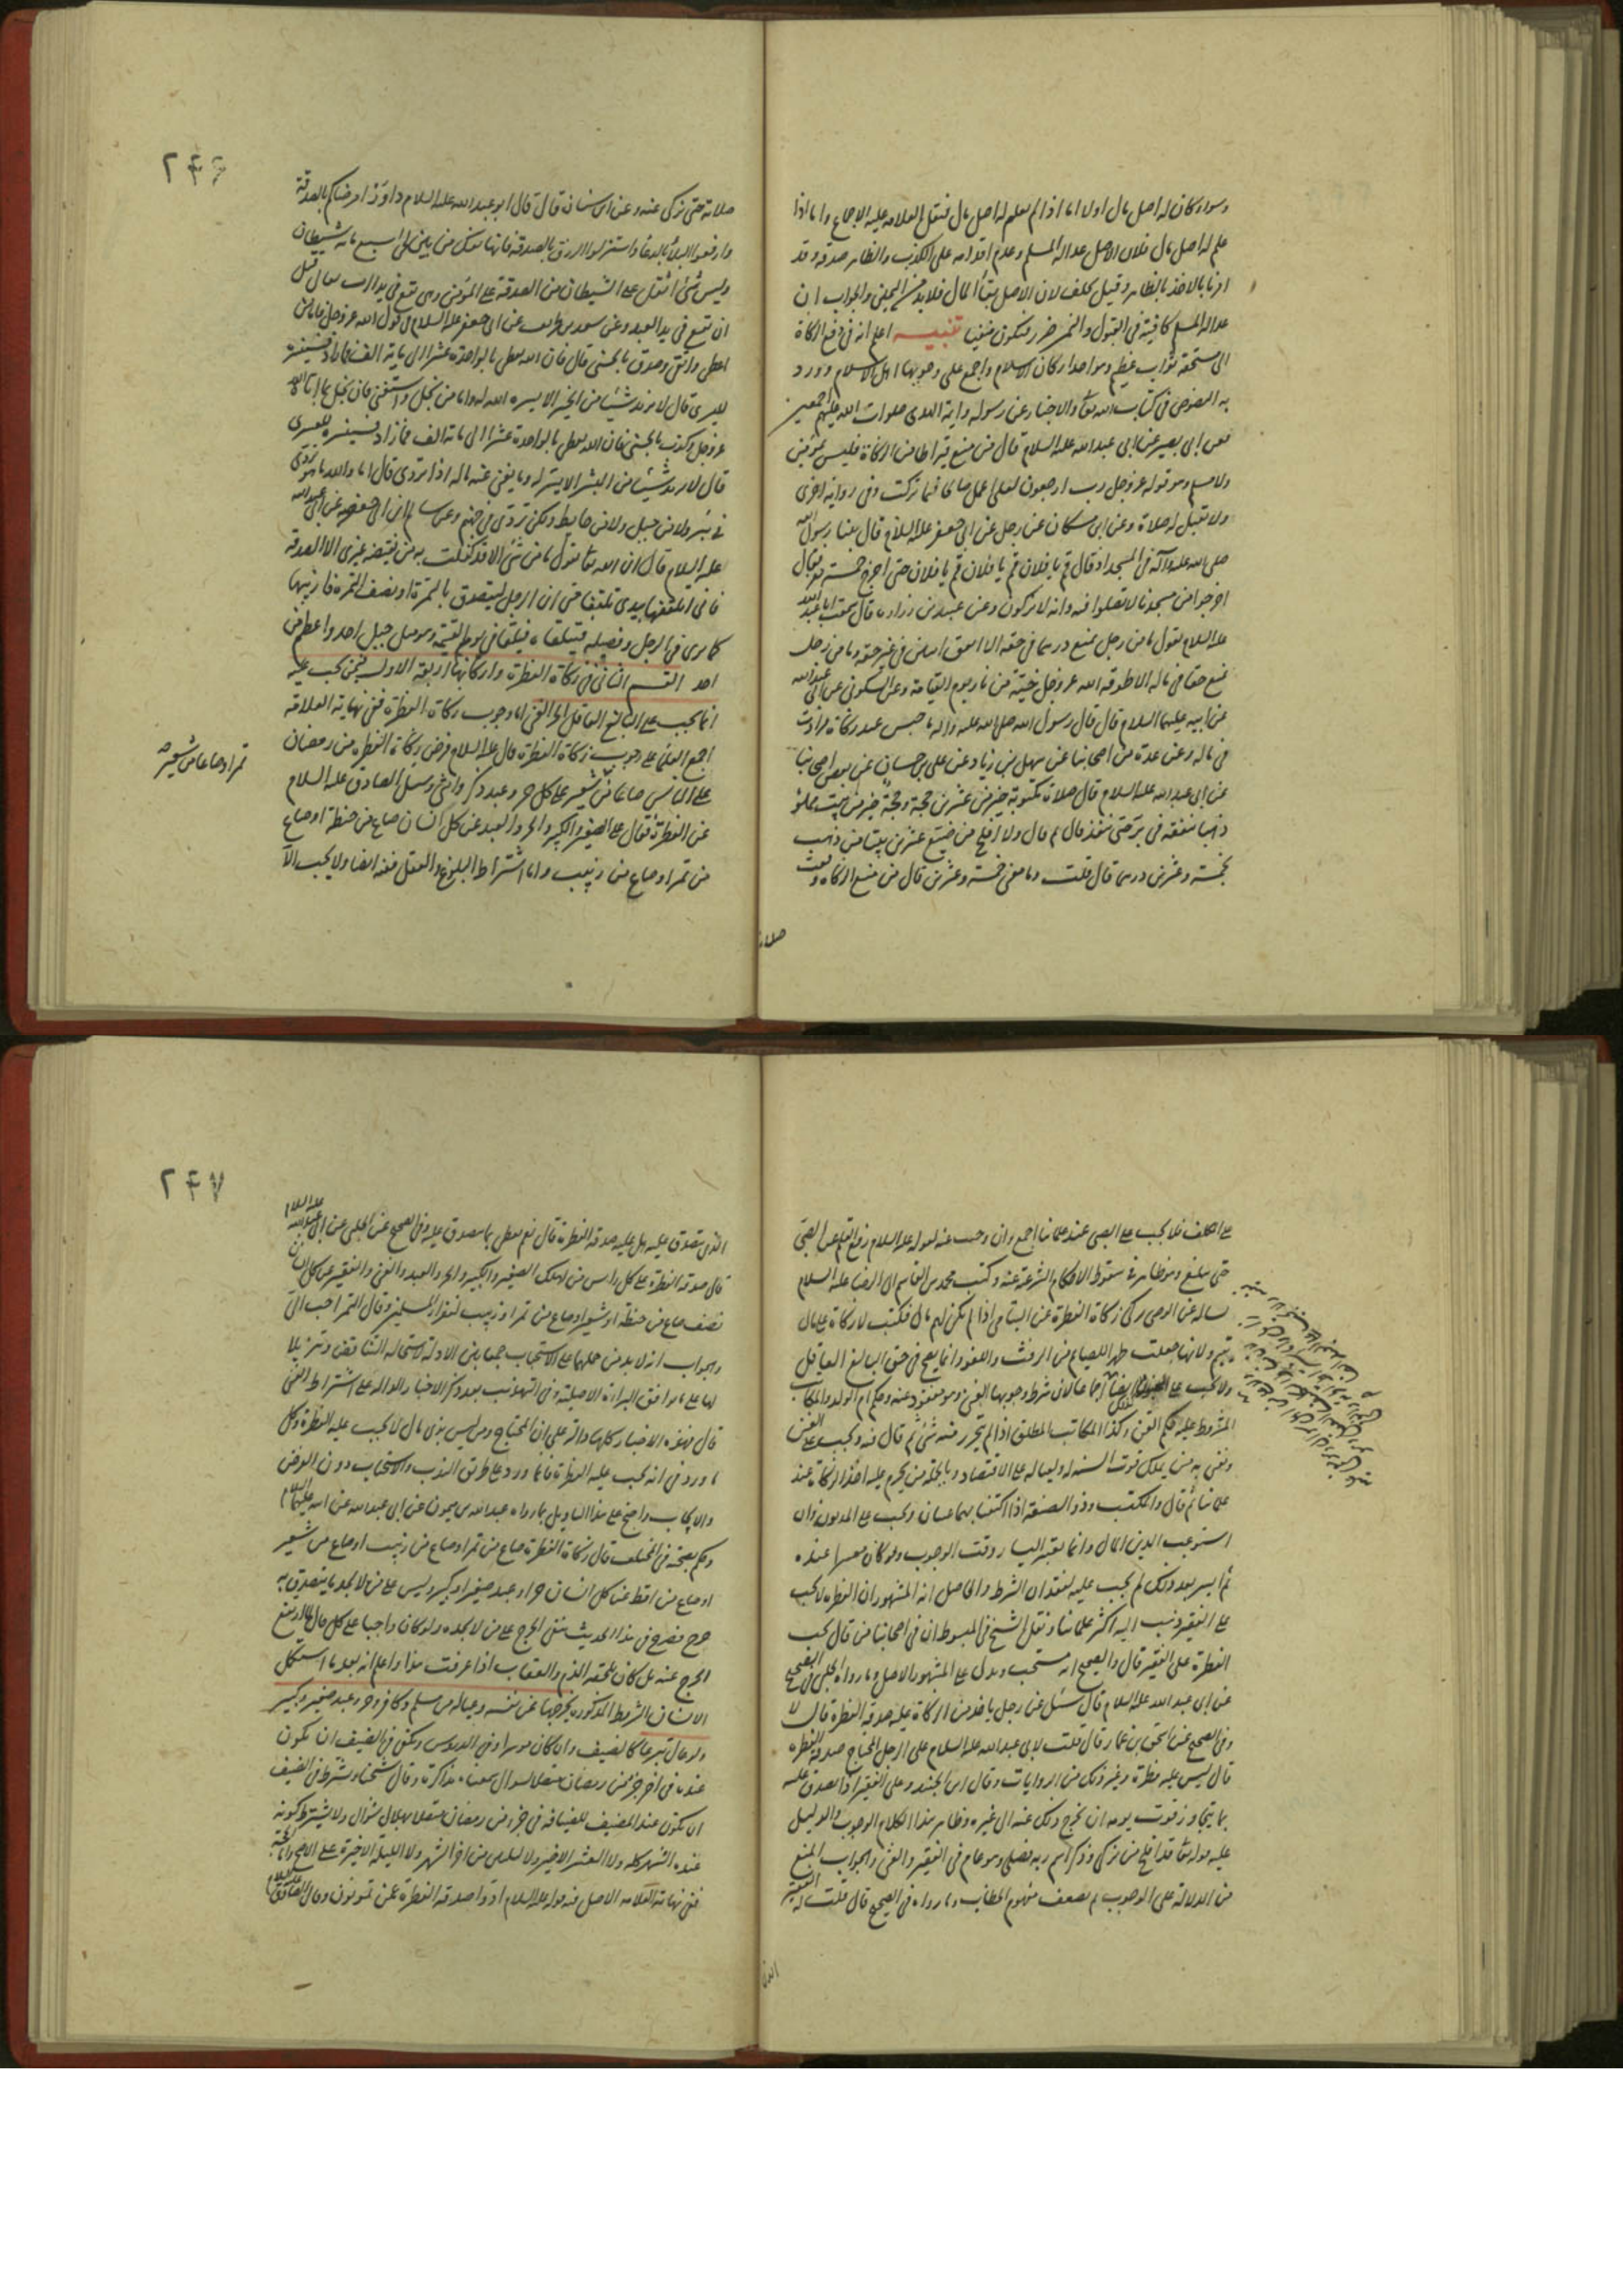 وسواء كان له اصل مال اولا اما اذا لم يعلم له اصل مال فنقل العلامه عليه الاجماع واما اذا
علم له اصل مال فلان الاصل عداله المسلم وعدم اقدامه على الكذب والظاهر صدقه وقد
امرنا بالاخذ بالظاهر وقيل يحلف لان الاصل بقاء المال فلابد من اليمين والجواب ان
عداله المسلم كافية في القبول والتحرز فيكون منفيا تنبيه اعلم انه في دفع الزكاة
الى مستحقه ثواب عظيم وهو احد اركان الاسلام واجمع على وجوبها اهل الاسلام وورد
به النصوص في كتاب الله تعالى والاخبار عن رسوله وايمة الهدى صلوات الله عليهم اجمعين
فعن ابي بصير عن ابي عبدالله عليه السلام قال من منع قيراطا من الزكاة فليس بمومن
ولا مسلم وهو قوله عز وجل رب ارجعون لعلي اعمل صالحا فيما تركت وفي رواية اخرى
ولا تقبل له صلاة وعن ابن مسكان عن رجل عن ابي جعفر عليه السلام قال بينا رسول الله
صلى الله عليه وآله في المسجد اذ قال قم يا فلان قم يا فلان قم يا فلان حتى اخرج خمسة نفر فقال
اخرجوا من مسجدنا لا تصلوا فيه وانتم لا تزكون وعن عبيد بن زراره قال سمعت ابا عبد الله
عليه السلام يقول ما من رجل يمنع درهما في حقه الا انفق اثنين في غير حقه وما من رجل
يمنع حقا في ماله الا طوقه الله عز وجل حية من نار يوم القيامة وعن السكوني عن ابي عبدالله
عن ابيه عليهما السلام قال قال رسول الله صلى الله عليه وآله ما حبس عبد زكاة فزادت
في ماله وعن عدة من اصحابنا عن سهل بن زياد عن علي بن حسان عن بعض اصحابنا
عن ابي عبدالله عليه السلام قال صلاة مكتوبة خير من عشرين حجة وحجة خير من بيت مملو
ذهبا ينفقه في بر حتى ينفد قال ثم قال ولا افلح من ضيع عشرين بيتا من ذهب
بخمسة وعشرين درهما قال قلت وما معنى خمسة وعشرين قال من منع الزكاة وقفت
صلاته
٢۴۶
صلاته حتى يزكي عنه وعن ابن سنان قال قال ابو عبدالله عليه السلام داووا مرضاكم بالصدقة
وادفعوا البلاء بالدعاء واستنزلوا الرزق بالصدقة فانها تفك من بين لحي سبع مائة شيطان
وليس شئ اثقل على الشيطان من الصدقة على المؤمن وهي تقع في يد الرب تعالى قبل
ان تقع في يد العبد وعن سعد بن طريف عن ابي جعفر عليه السلام في قول الله عز وجل فاما من
اعطى واتقى وصدق بالحسنى قال فان الله يعطي بالواحدة عشرا الى ماية الف فما زاد فسنيسره
لليسرى قال لا يريد شيئا من الخير الا يسره الله له واما من بخل واستغنى قال بخل بما اتاه الله
عز وجل وكذب بالحسنى فان الله يعطي بالواحدة عشرا الى ماية الف فما زاد فسنيسره للعسرى
قال لا يريد شيئا من الشر الا يسر له وما يغني عنه ماله اذا تردى قال اما والله ما هو تردى
في بئر ولا من جبل ولا من حايط ولكن تردى في نار جهنم وعن سالم بن ابي حفصه عن ابي عبدالله
عليه السلام قال ان الله تعالى يقول ما من شئ الا وقد وكلت به من يقبضه غيري الا الصدقة
فاني اتلقفها بيدي تلقفا حتى ان الرجل ليتصدق بالتمرة او بنصف التمرة فاربيها
كما يربي الرجل فصيله فيلقاه في يوم القيمة وهو مثل جبل احد واعظم من
احد القسم الثاني في زكاة الفطرة واركانها اربعة الاول فيمن تجب عليه
انما تجب على البالغ العاقل الحر الغني اما وجوب زكاة الفطرة ففي نهاية العلامة
اجمع العلماء على وجوب زكاة الفطرة قال عليه السلام فرض زكاة الفطرة من رمضان
على الناس صاعا من شعير على كل حر وعبد ذكر وانثى وسئل الصادق عليه السلام
عن الفطرة فقال على الصغير والكبير والحر والعبد عن كل انسان صاع من حنطة او صاع
من تمر او صاع من زبيب واما اشتراط البلوغ والعقل ففيه ايضا ولا تجب الا
تمر او صاعا من شعير صح
على المكلف فلا تجب على الصبي عند علمائنا اجمع وان وجب عنه لقوله عليه السلام رفع القلم عن الصبي
حتى يبلغ وهو ظاهر في سقوط الاحكام الشرعية عنه وكتب محمد بن القاسم الى الرضا عليه السلام
يساله عن الوصي يزكي زكاة الفطرة عن اليتامى اذا لم يكن لهم مال فكتب لا زكاة على مال
يتيم ولانها جعلت طهرا للصيام من الرفث واللغو وانما يصح في حق البالغ العاقل
ولا تجب على ايضا اجماعا لان شرط وجوبها الغنى وهو مفقود عنه وحكم ام الولد والمكاتب
المشروط عليه حكم القن وكذا المكاتب المطلق اذا لم يتحرر منه شئ ثم قال فيه وتجب على الغني
ونعني به من يملك قوت السنة له ولعياله على الاقتصاد وبالجملة من يحرم عليه اخذ الزكاة عند
علمائنا ثم قال والمكتسب وذو الصنعة اذا اكتفيا بهما غنيان وتجب على المديون وان
استوعب الدين المال وانما يعتبر اليسار وقت الوجوب ولو كان معسرا عنده
ثم ايسر بعد ذلك لم تجب عليه لفقدان الشرط والحاصل انه المشهور ان الفطرة لا تجب
على الفقير وذهب اليه اكثر علمائنا ونقل الشيخ في المبسوط ان في اصحابنا من قال تجب
الفطرة على الفقير قال والصحيح انه مستحب ويدل على المشهور الاصل وما رواه الحلبي في الصحيح
عن ابي عبدالله عليه السلام قال سئل عن رجل ياخذ من الزكاة عليه صدقة الفطرة قال لا
وفي الصحيح عن اسحق بن عمار قال قلت لابي عبدالله عليه السلام على الرجل المحتاج صدقة الفطره
قال ليس عليه فطرة وغير ذلك من الروايات وقال ابن الجنيد وعلى الفقير اذا تصدق عليه
بما يتجاوز قوت يومه ان يخرج ذلك عنه الى غيره وظاهر هذا الكلام الوجوب والدليل
عليه قوله تعالى قد افلح من تزكى وذكر اسم ربه فصلى وهو عام في الفقير والغني والجواب المنع
من الدلالة على الوجوب ثم بضعف مفهوم الخطاب وما رواه في الصحيح قال قلت له الفقير
الذي
٢۴٧
الذي يتصدق عليه هل عليه صدقة الفطرة قال نعم يعطي مما يتصدق عليه وفي الصحيح عن الحلبي عن ابي عبدالله عليه السلام
قال صدقة الفطرة على كل راس من اهلك الصغير والكبير والحر والعبد والغني والفقير عن كل انسان
نصف صاع من حنطة او شعير او صاع من تمر او زبيب لفقراء المسلمين وقال التمر احب الي
والجواب انه لا بد من حملها على الاستحباب جمعا بين الادلة لاستحالة التناقض وتنزيلا
لها على ما يوافق البراءة الاصلية وفي التهذيب بعد ذكر الاخبار الدالة على اشتراط الغنى
قال فهذه الاخبار كلها دالة على ان المحتاج ومن ليس بذي مال لا تجب عليه الفطرة وكل
ما ورد في انه تجب عليه الفطرة فانما ورد على طريق الندب والاستحباب دون الفرض
والايجاب واحتج على هذا التاويل بما رواه عبدالله بن ميمون عن ابي عبدالله عن ابيه عليهما السلام
وحكم بصحته في المختلف قال زكاة الفطرة صاع من تمر او صاع من زبيب او صاع من شعير
او صاع من اقط عن كل انسان حر او عبد صغير او كبير وليس على من لا يجد ما يتصدق به
حرج فصرح في هذا الحديث بنفي الحرج على من لا يجده ولو كان واجبا على كل حال لما ارتفع
الحرج عنه بل كان يلحقه الذم والعقاب اذا عرفت هذا واعلم انه بعد ما استكمل
الانسان الشروط المذكوره يخرجها عن نفسه وعياله من مسلم وكافر وحر وعبد صغير وكبير
ولو عال تبرعا كالضيف وان كان موسرا وفي الدروس ويكفي في الضيف ان يكون
عنده في اخر جزء من رمضان متصلا بشوال سمعناه مذاكرة وقال شيخنا ويشترط في الضيف
ان يكون عند المضيف للضيافة في جزء من رمضان متصلا بهلال شوال ولا يشترط كونه
عنده الشهر كله ولا العشر الاخير ولا ليلتين من اخر الشهر ولا الليلة الاخيرة على الاصح
ففي نهاية العلامه الاصل فيه قوله عليه السلام ادوا صدقة الفطرة عمن تمونون وقال الصادق عليه السلام